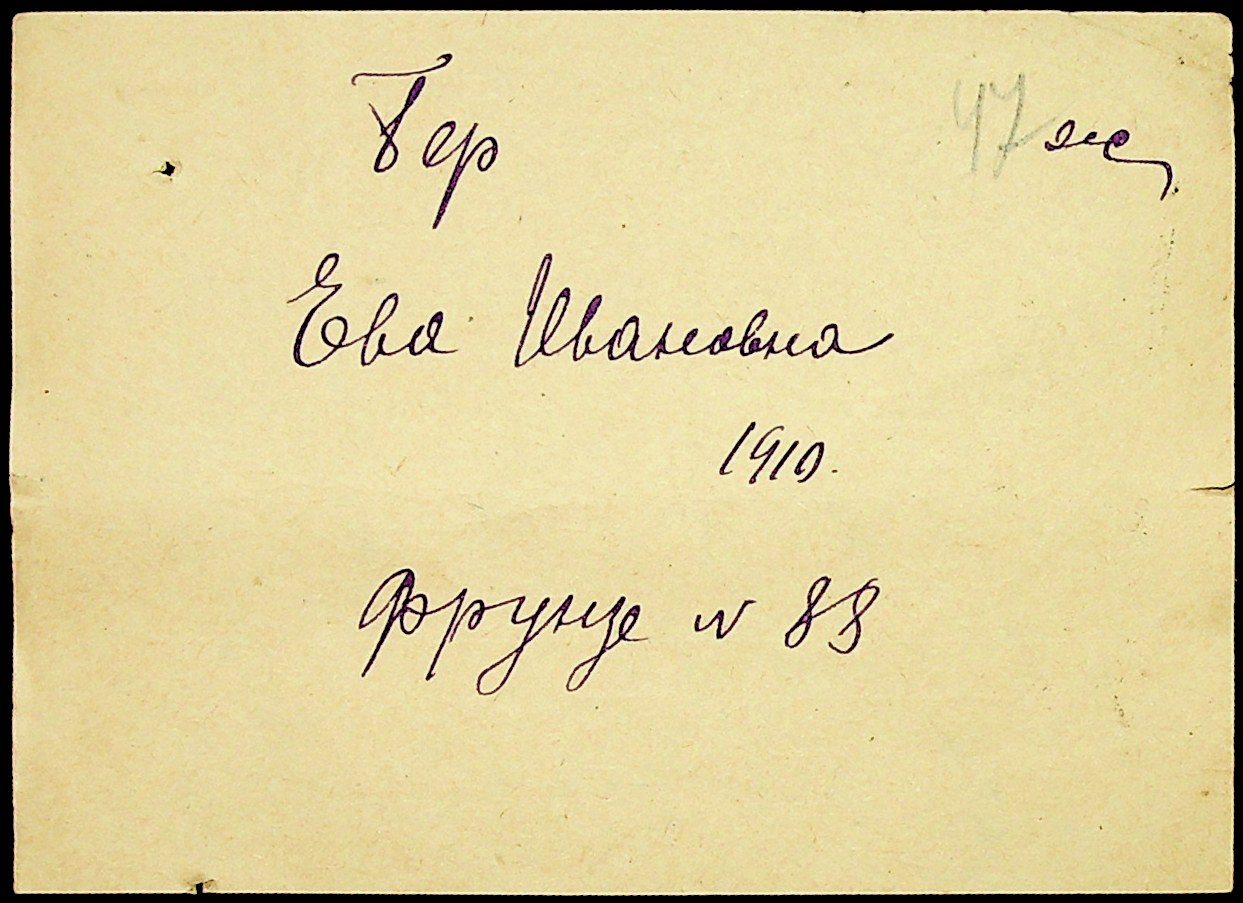 Бер 47 ж
Ева Ивановна
1910.
Фрунзе N 88